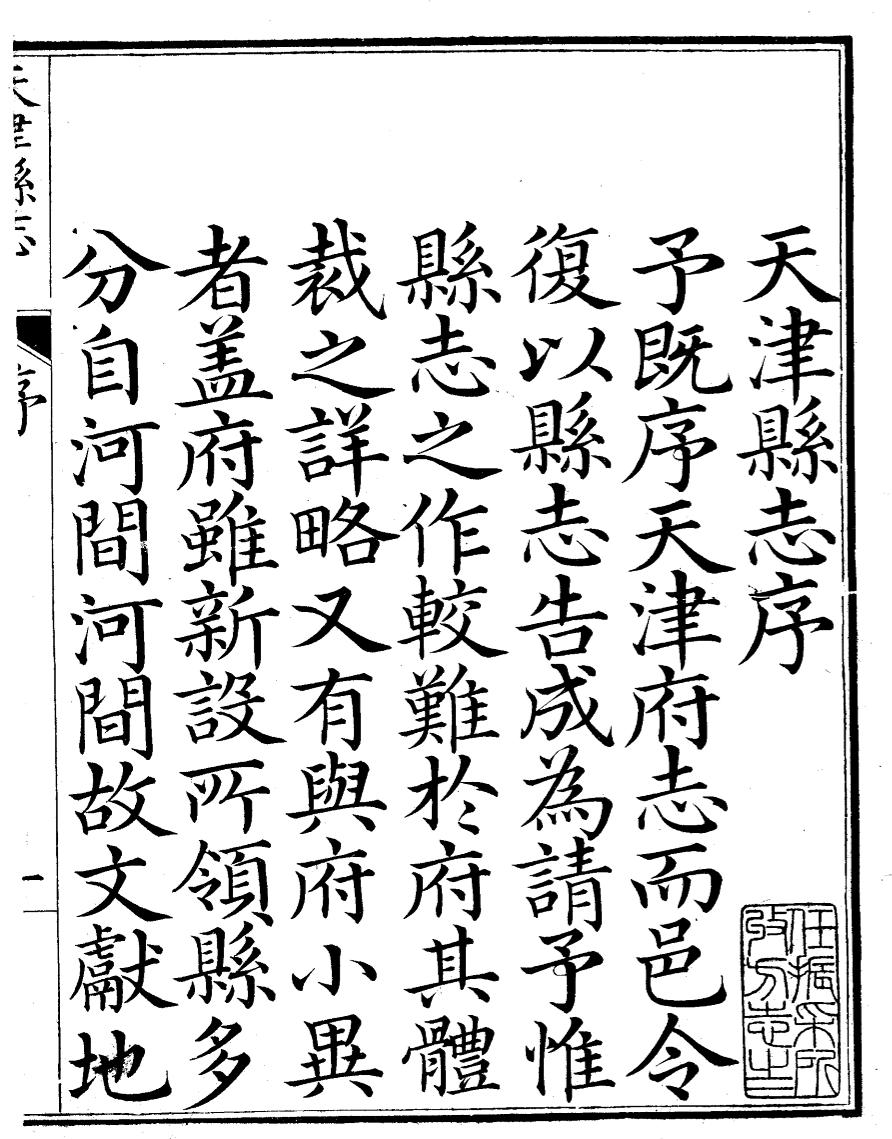 天津縣志序
予既序天津府志而邑令
復以縣志告成為請予惟
縣志之作較難於府其體
裁之詳略又有與府小異
者盖府雖新設所領縣多
分自河間河間故文獻地
天津縣志
序
一
任振采所
收方志之一